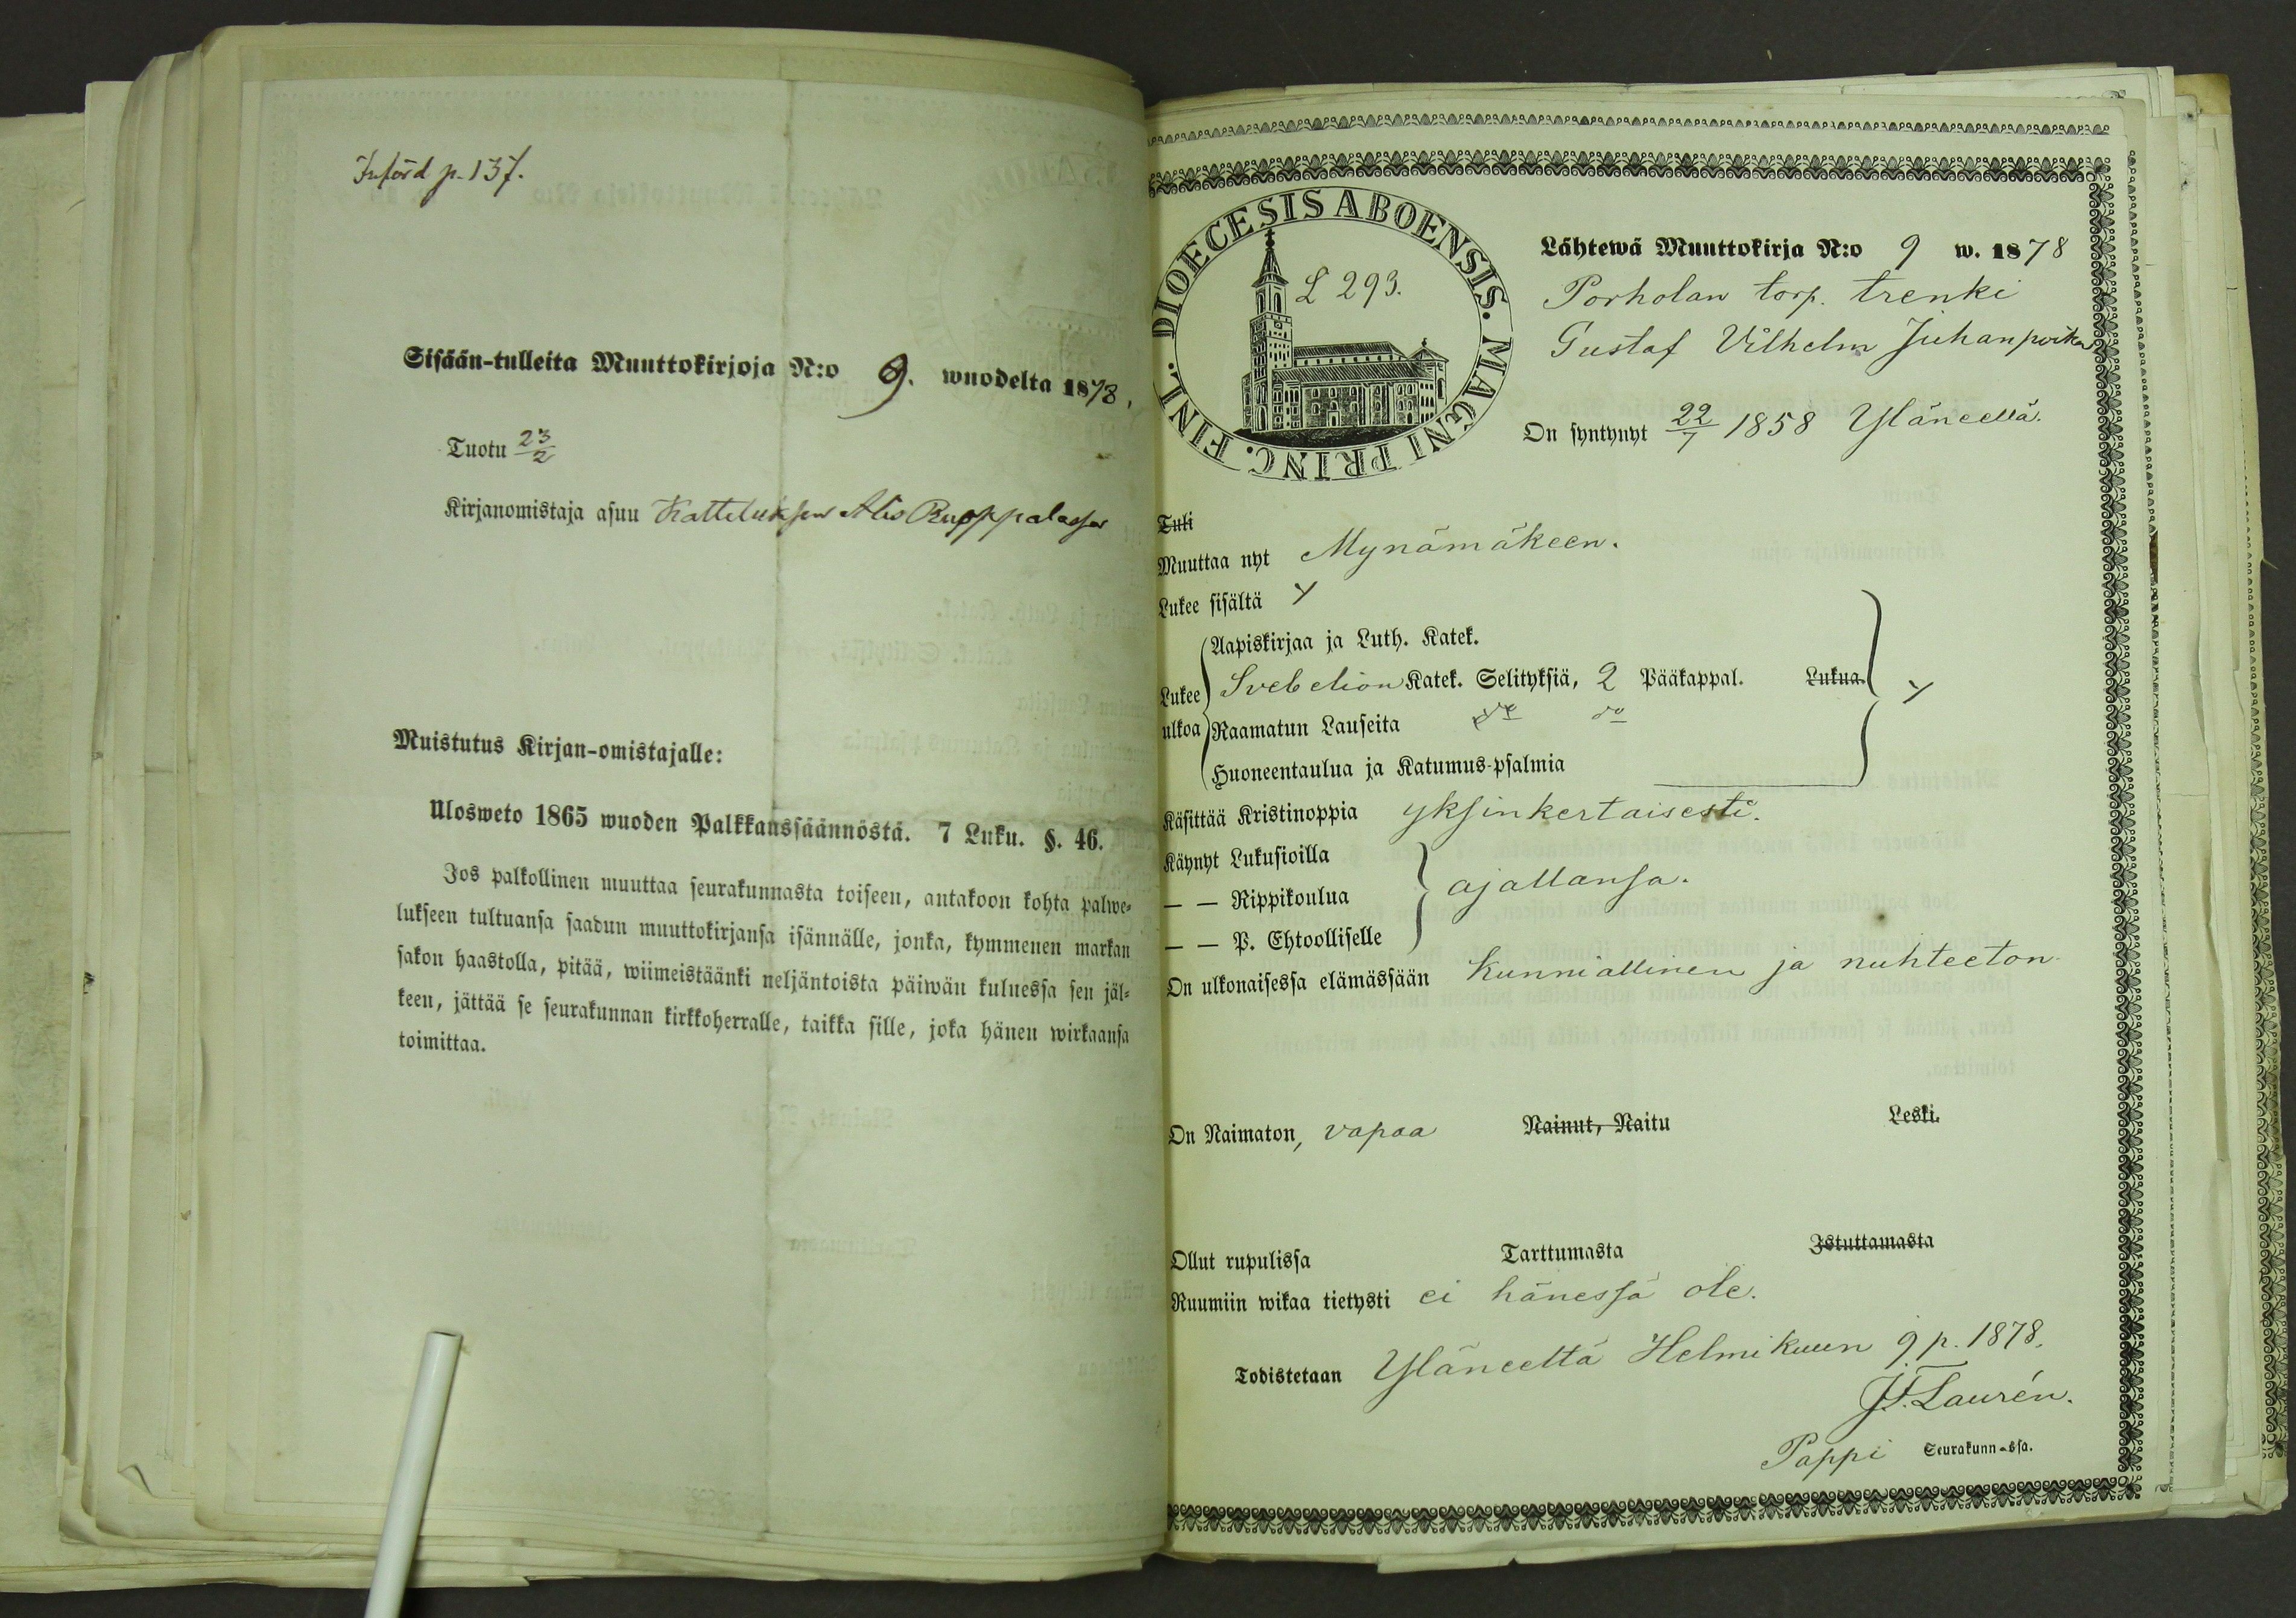 Införd p. 137.
Sisään-tulleita Muuttokirjoja N:o 9. wuodelta 1878,
Tuotu 23/2
Kirjanomistaja asuu Katteluksen Alis Ruoppalassa
Muistutus Kirjan-omistajalle:
Ulosweto 1865 wuoden Palkkaussäännöstä. 7 Luku. §. 46.
Jos palkollinen muuttaa seurakunnasta toiseen, antakoon kohta palwe-
lukseen tultuansa saadun muuttokirjansa isännälle, jonka, kymmenen markan
sakon haastolla, pitää, wiimeistäänki neljäntoista päiwän kuluessa sen jäl-
keen, jättää se seurakunnan kirkkoherralle, taikka sille, joka hänen wirkaansa
toimittaa.
DIOECESIS ABOENSIS. MAGNI PRINC. FINL.
L 293.
Lähtewä Muuttokirja N:o 9 w. 1878
Porholan torp. trenki
Gustaf Vilhelm Juhanpoika
On syntynyt 22/7 1858 Yläneellä.
Tuli
Muuttaa nyt Mynämäkeen.
Lukee sisältä y
Aapiskirjaa ja Luth. Katek.
Lukee Svebelion Katek. Selityksiä, 2 Pääkappal. Lukua. y
ulkoa Raamatun Lauseita do do
Huoneentaulua ja Katumus-psalmia
Käsittää Kristinoppia yksinkertaisesti.
Käynyt Lukusioilla
— — Rippikoulua ajallansa.
— — P. Ehtoolliselle
On ulkonaisessa elämässään kunniallinen ja nuhteeton
On Naimaton, vapaa Nainut, Naitu Leski.
Ollut rupulissa Tarttumasta Istuttamasta
Ruumiin wikaa tietysti ei hänessä ole.
Todistetaan Yläneeltä Helmikuun 9 p. 1878.
J.F. Laurén.
Pappi Seurakunn-ssa.